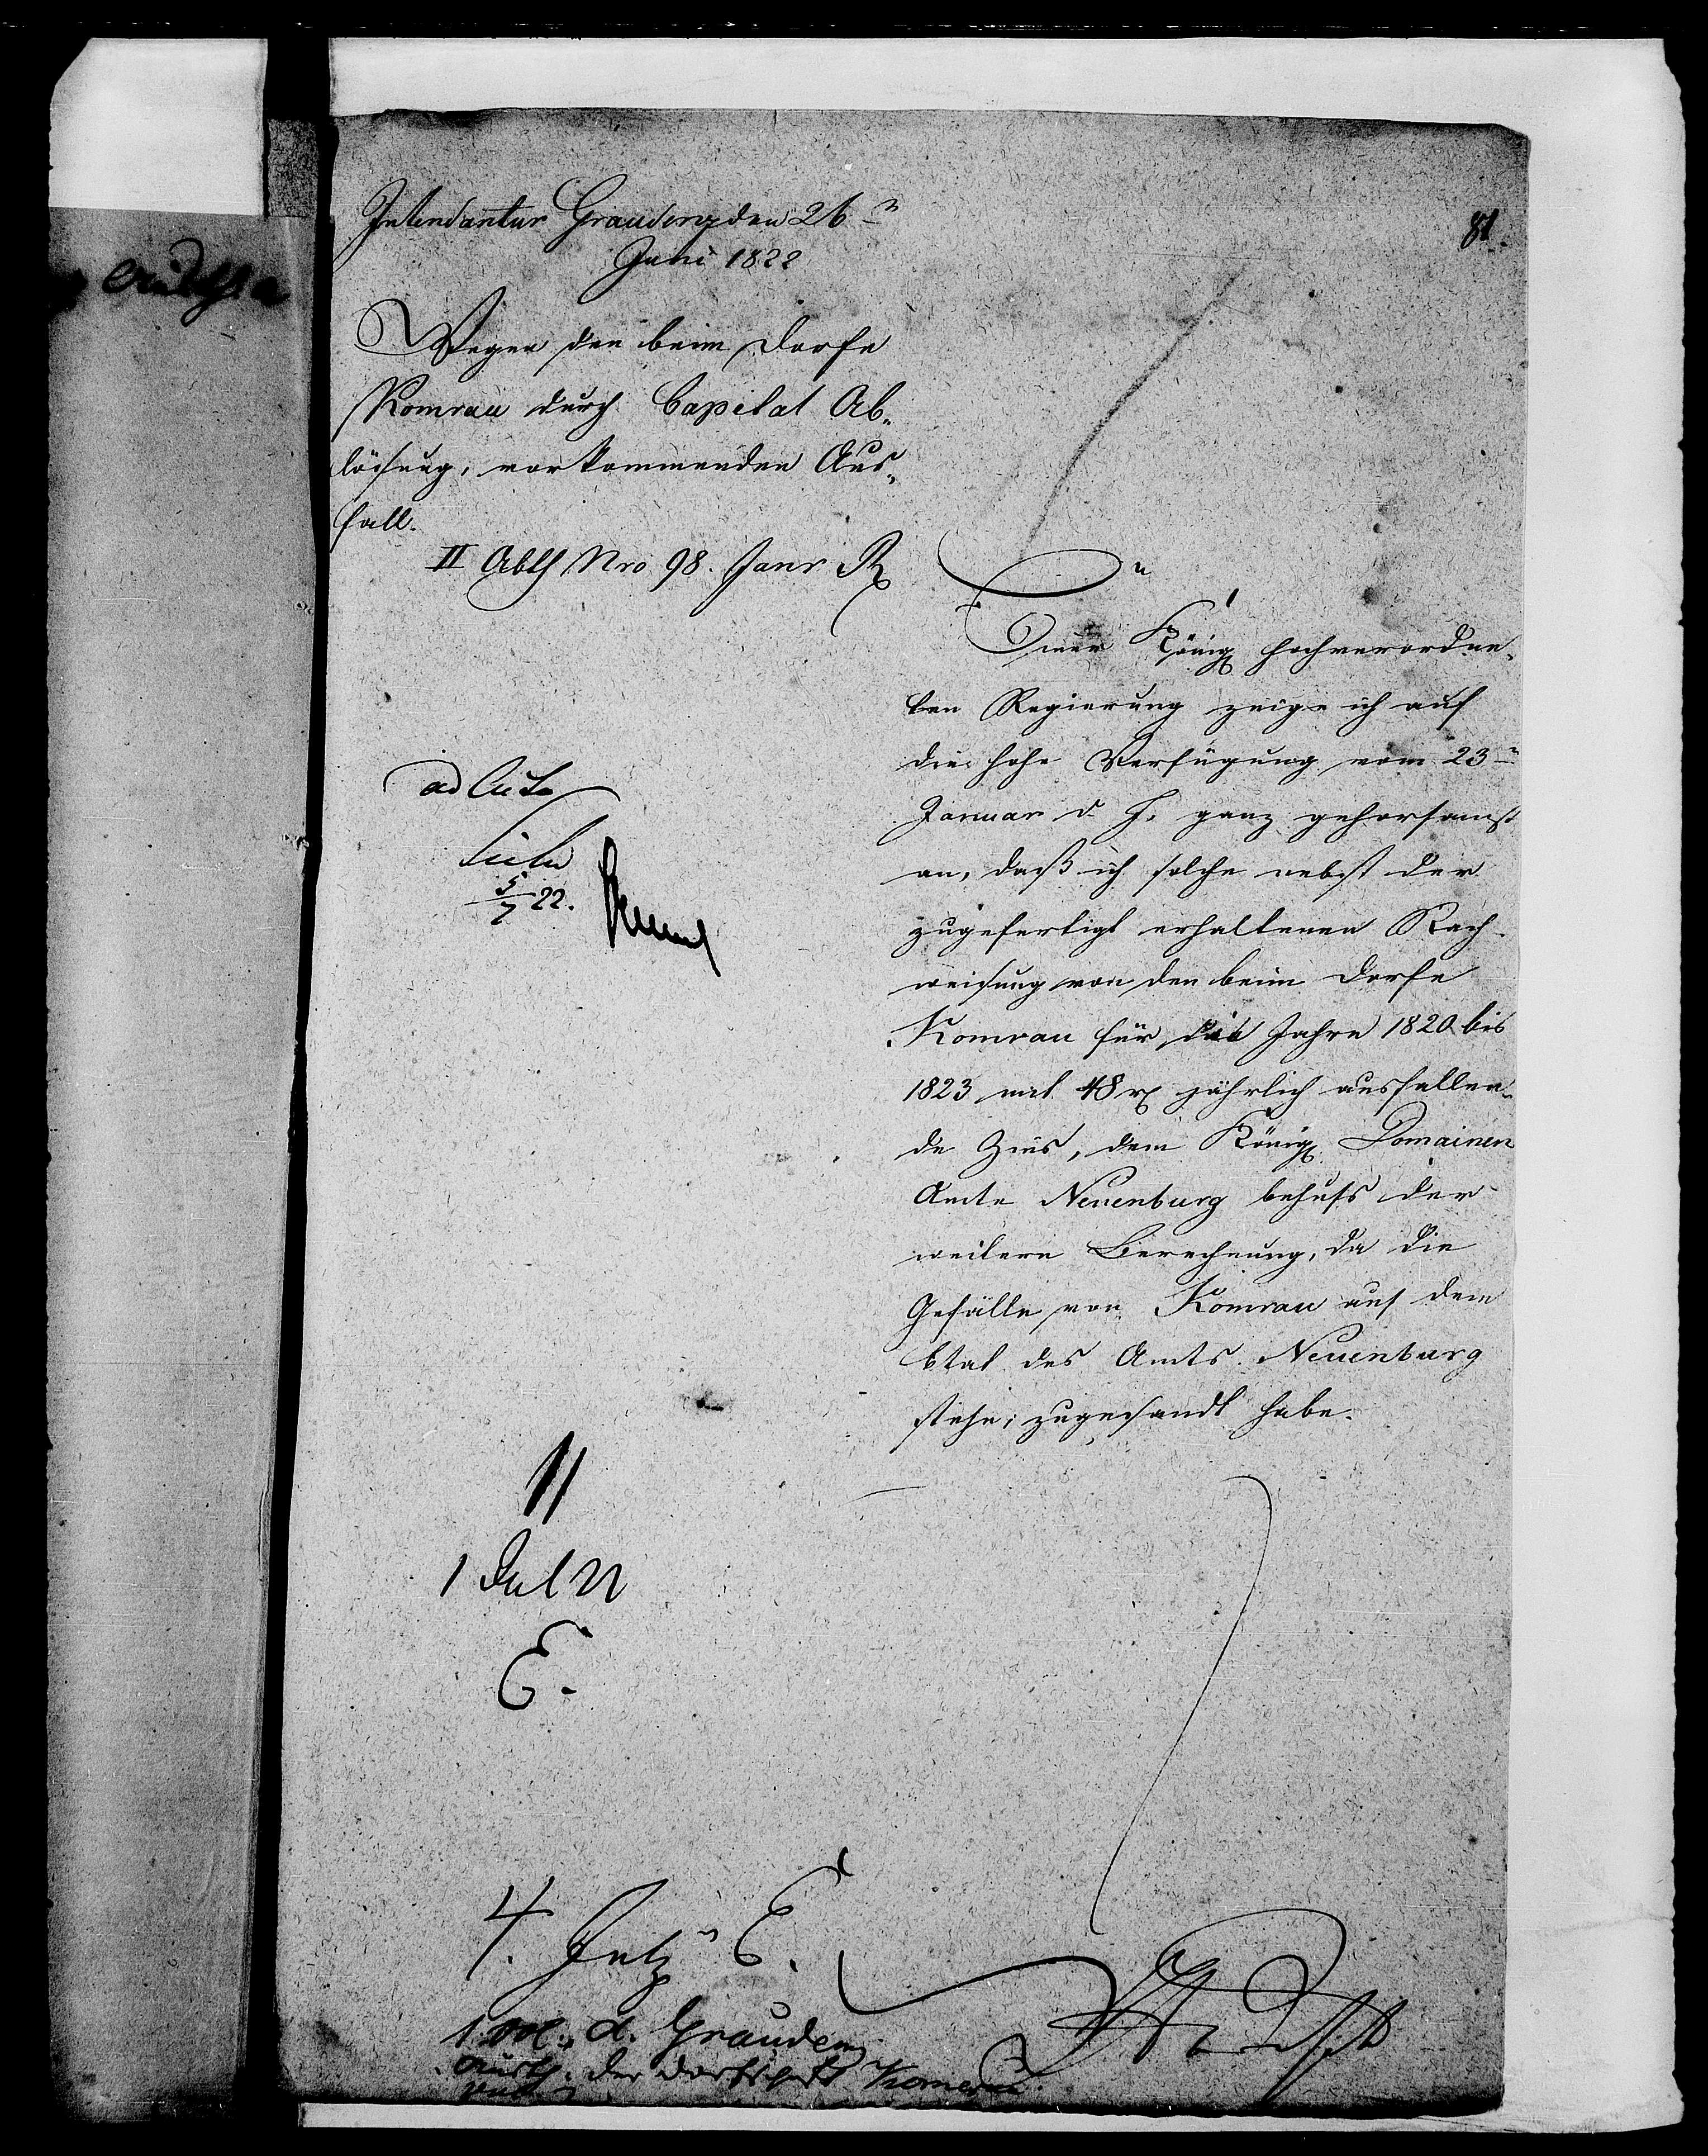 81.
Intendantur Graudenz den 26n
Juni 1822
Wegen den beim Dorfe
Komrau durch Capital Ab„
lösung, vorkommenden Aus„
fall.
II Abth Nro 98. Janr R
Einer Königl hochverordne„
ten Regierung zeige ich auf
die hohe Verfügung vom 23n
Januar d. J. ganz gehorsamst
an, daß ich solche nebst der
zugefertigt erhaltenen Nach„
weisung von den beim Dorfe
Komrau für die Jahre 1820 bis
1823 mit 48 rt jährlich ausfallen„
de Zins, dem Königl Domainen
Amte Neuenburg behufs der
weitern Berechnung, da die
Gefälle von Komrau auf dem
Etat des Amts Neuenburg
stehn, zugesandt habe.
ad acta
5/7 22.
11
1 Jul 22
E.
4.
1 Vol. d. Graudenz
der Dorfschaft Komerau.